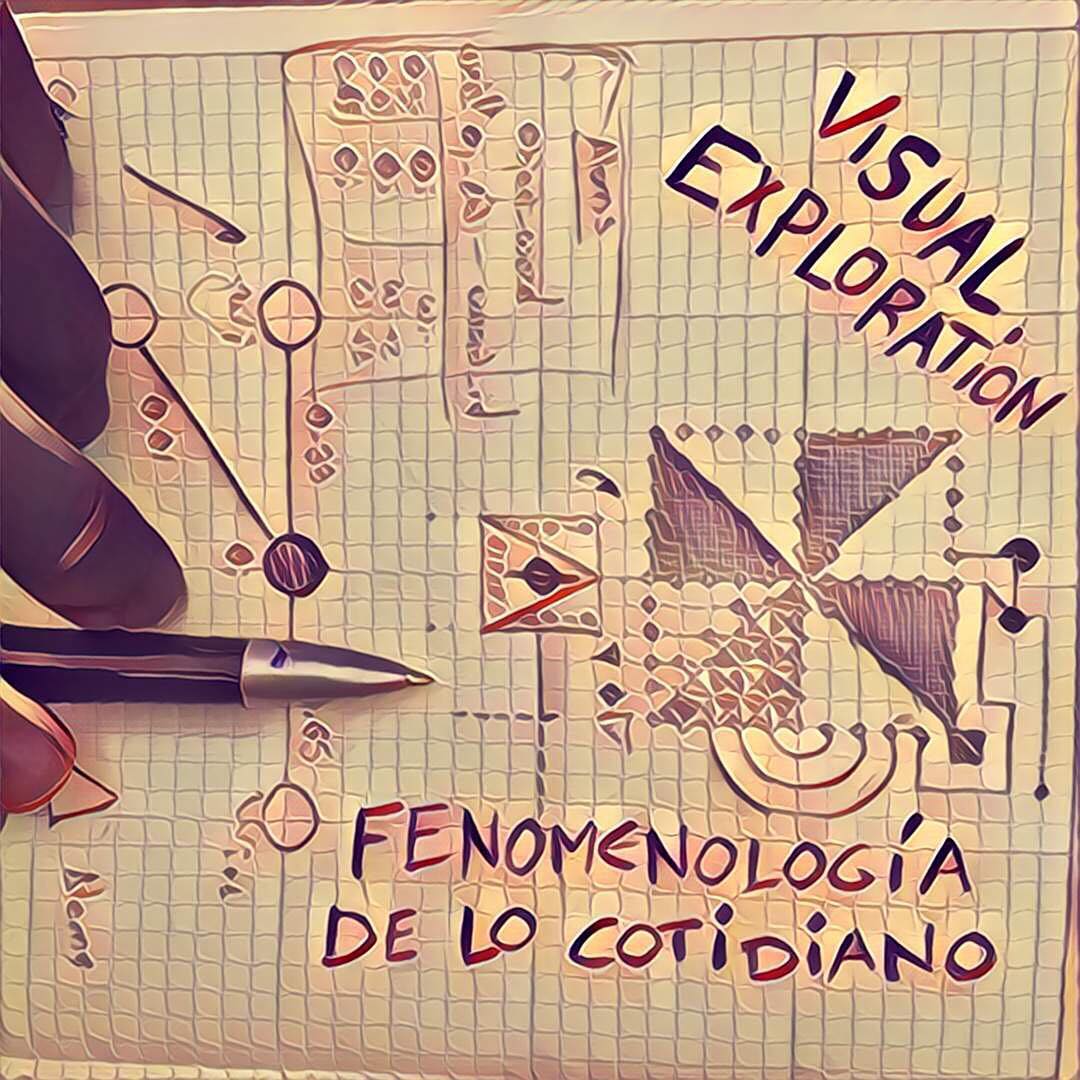 VISUAL
EXPLORATION
FENOMENOLOGÍA
DE LO COTIDIANO